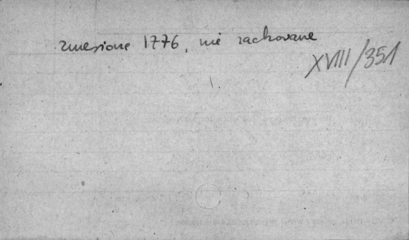 zniesione 1776, nie rachowane
XVIII/351